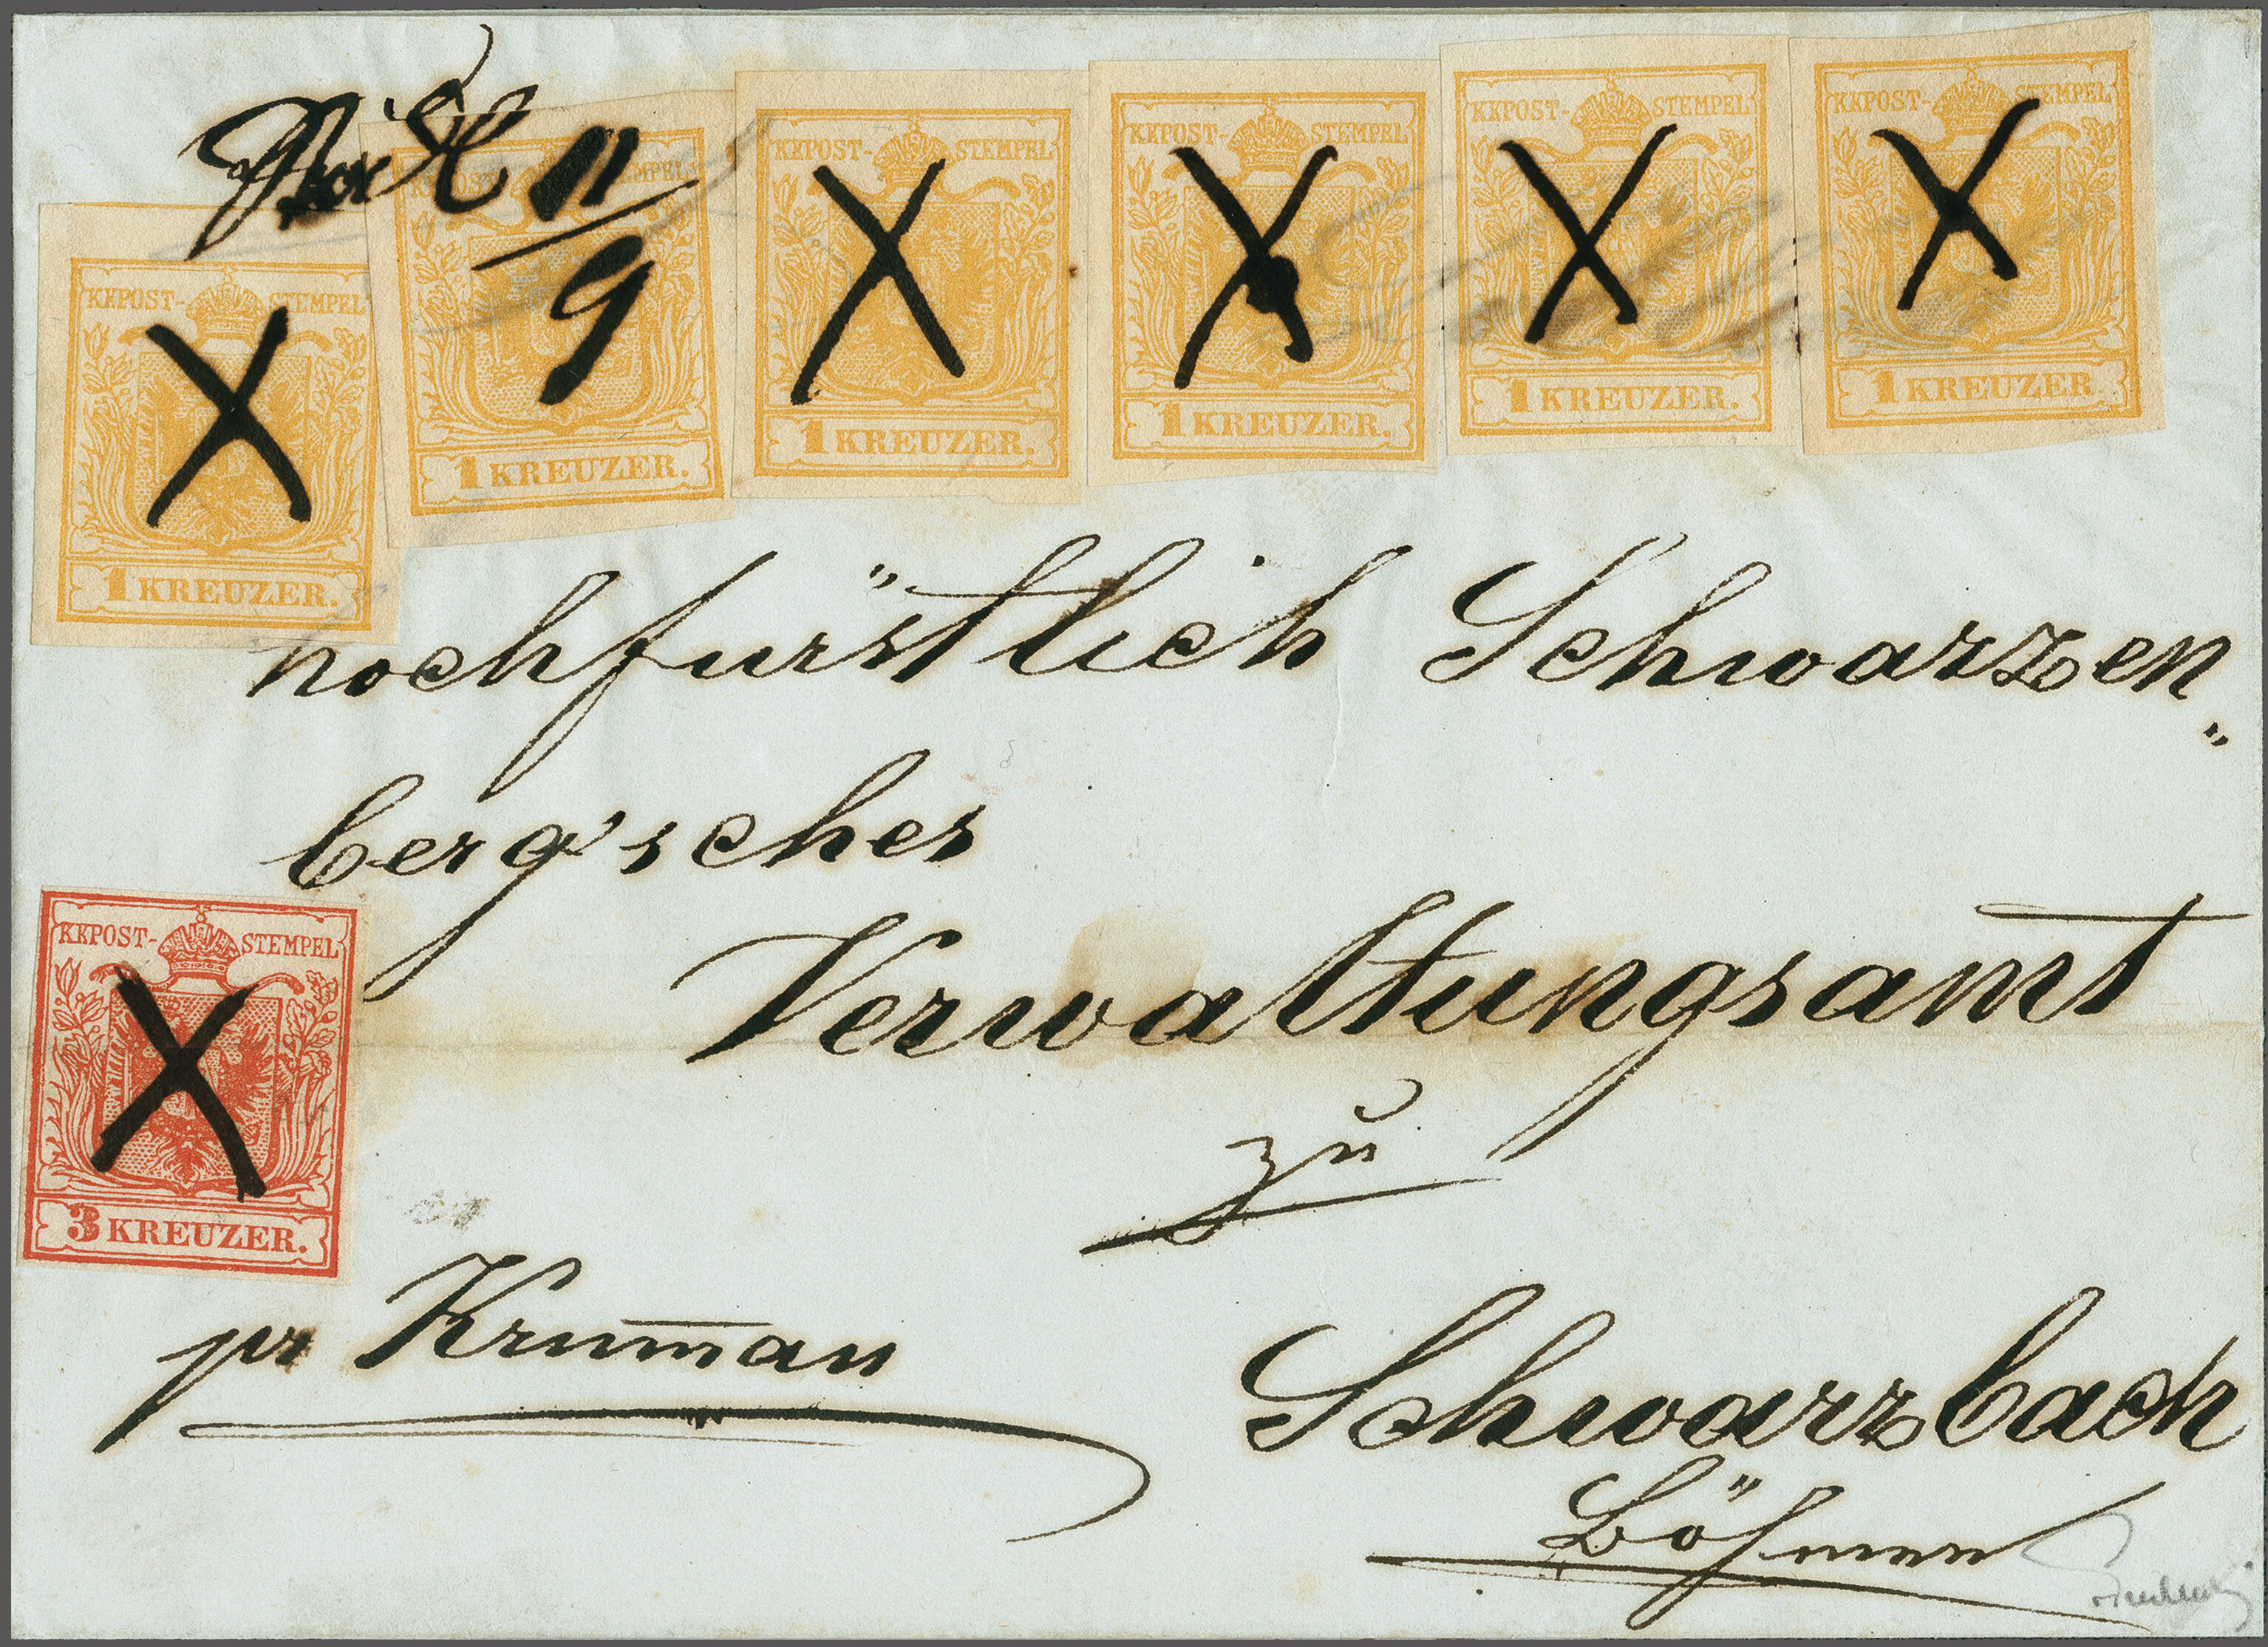 11
9
KKPOST-STEMPEL
1 KREUZER.
KKPOST-STEMPEL
1 KREUZER.
KKPOST-STEMPEL
1 KREUZER.
KKPOST-STEMPEL
1 KREUZER.
KKPOST-STEMPEL
1 KREUZER.
KKPOST-STEMPEL
1 KREUZER.
hochfürstlich Schwarzen„
berg'sches
Verwaltungsam̄t
KKPOST-STEMPEL
3 KREUZER.
zu
pr Krum̄au
Schwarzbach
Böhmen